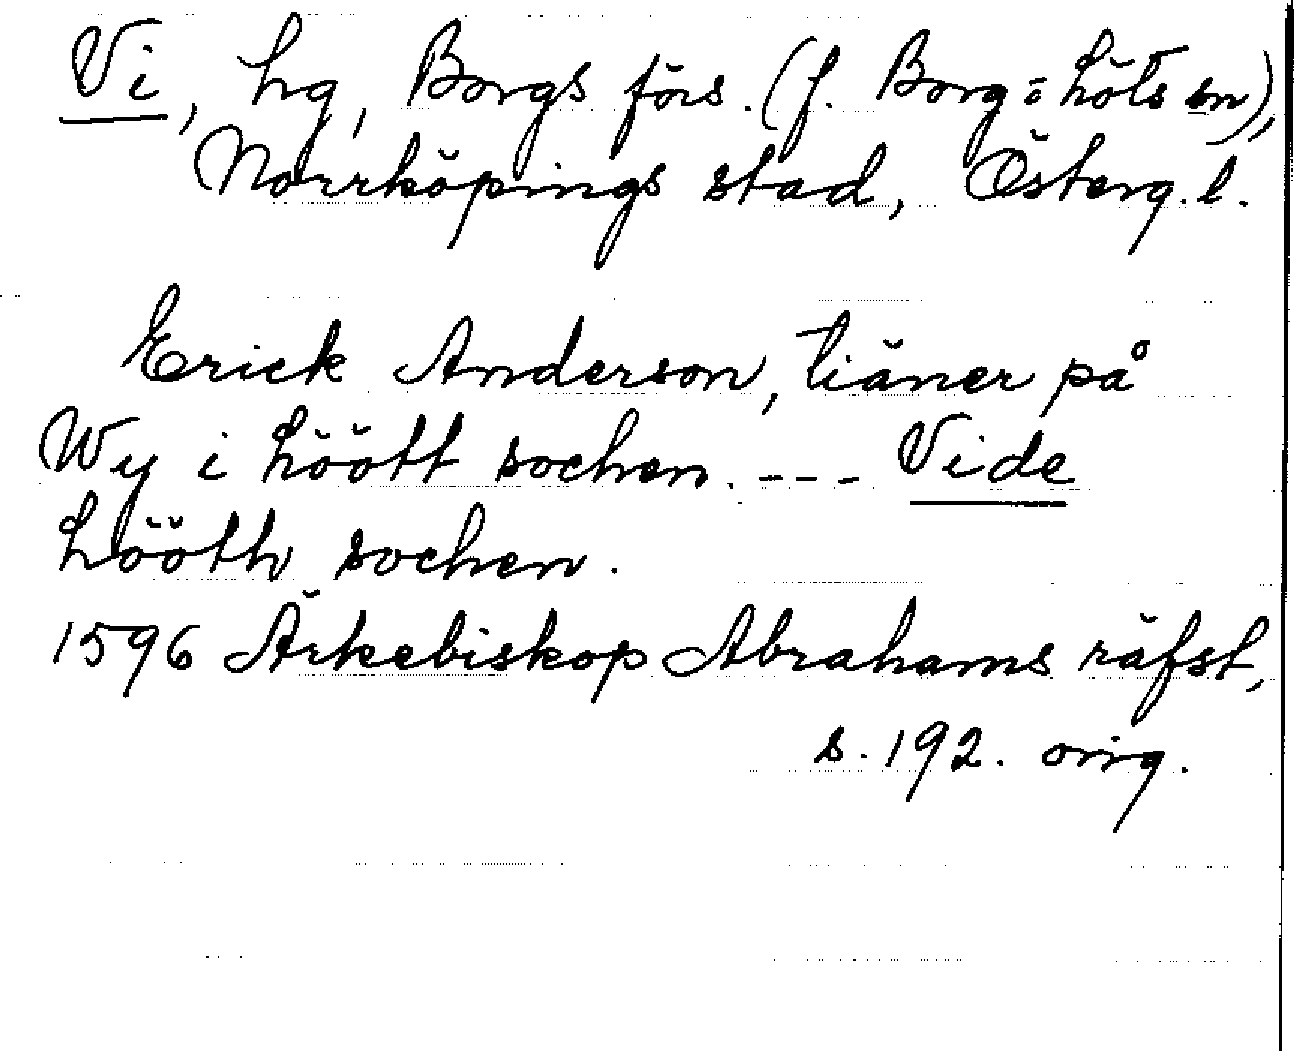 Vi, hg, Borgs förs. (f. Borg = Löts sn),
Norrköpings stad, Österg. l.
Erick Anderson, tiäner på
Wy i Löött sochen. --- Vide
Lööth sochen.
1596 Ärkebiskop Abrahams räfst,
s. 192. orig.